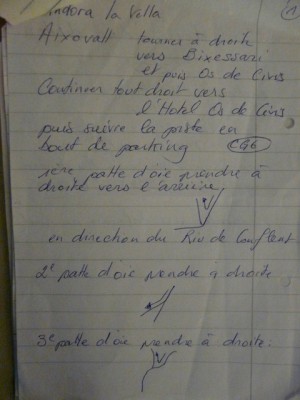 Andora la Vella
Aixovall tourner à droite
vers Bixessarri
et puis Os de Civis
Continuer tout droit vers
l'Hotel Os de Civis
puis suivre la piste en
bout de parking CG6
1ère patte d'oie prendre à
droite vers
en direction du Riu de Conflent
2è patte d'oie prendre à droite
3è patte d'oie prendre à droite.